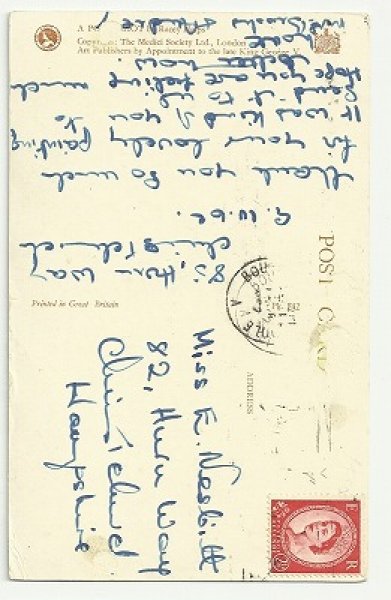 85, Hurn Way
Christchurch
9. 10. 60.
Thank you so much
for your lovely painting
It was kind of you to
send it to us
Hope you are feeling much
better now.
Love
Printed in Great Britain
Copyright: The Medici Society Ltd., London
Art Publishers by Appointment to the late King George V
POST CARD
ADDRESS
Miss E. Nesbitt
82, Hurn Way
Christchurch
Hampshire
E R